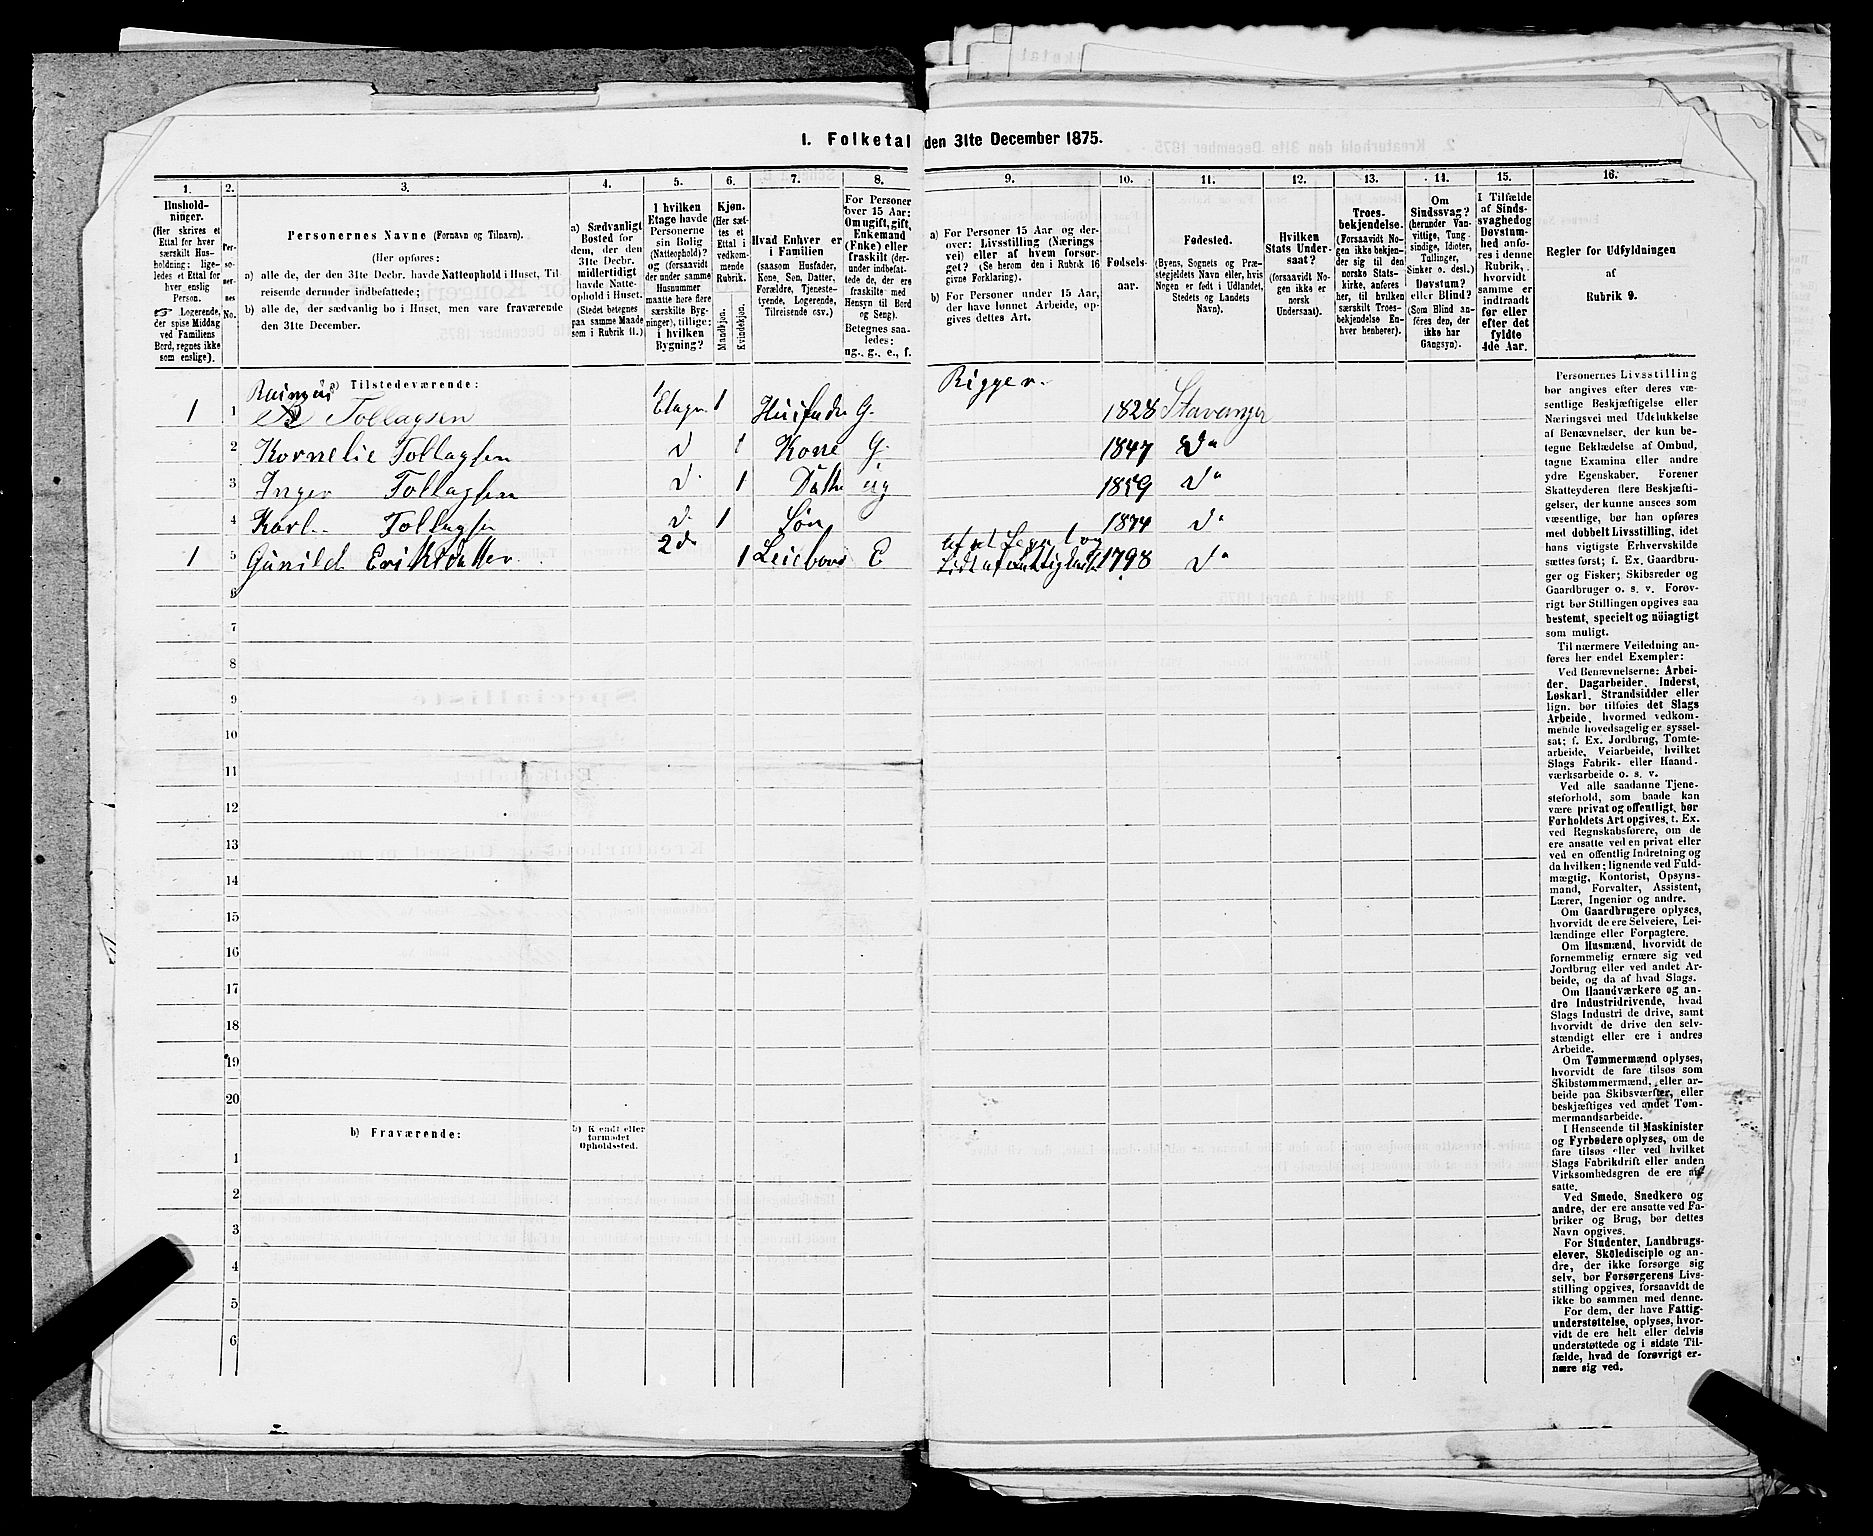 I. Folketal den 31te December 1875.
1. 2. 3. 4. 5. 6. 7. 8. 9. 10. 11. 12. 13. 14. 15. 16.
Hushold-
ninger.
(Her skrives et
Ettal for hver
særskilt Hus-
holdning; lige-
ledes et Ettal for
hver enslig
Person.
☞ Logerende,
der spise Middag
ved Familiens
Bord, regnes ikke
som enslige).
Per-
so-
ner-
nes
No.
Personernes Navne (Fornavn og Tilnavn).
(Her opføres:
a) alle de, der den 31te Decbr. havde Natteophold i Huset, Til-
reisende derunder indbefattede;
b) alle de, der sædvanlig bo i Huset, men vare fraværende
den 31te December.
a) Sædvanligt
Bosted for
dem, der den
31te Decbr.
midlertidigt
havde Natte-
ophold i Huset.
(Stedet betegnes
paa samme Maade
som i Rubrik 11.)
I hvilken
Etage havde
Personerne
sin Bolig
(Natteophold)?
og (forsaavidt
der under samme
Husnummer
maatte høre flere
særskilte Byg-
ninger), tillige:
i hvilken
Bygning?
Kjøn.
(Her sæt-
tes et
Ettal i
vedkom-
mende
Rubrik.
Mandkjøn.
Kvindekjøn.
Hvad Enhver er
i Familien
(saasom Husfader,
Kone, Søn, Datter,
Forældre, Tjeneste-
tyende, Logerende,
Tilreisende osv.)
For Personer
over 15 Aar:
Om ugift, gift,
Enkemand
(Enke) eller
fraskilt (der-
under indbefat-
tede de, der ere
fraskilte med
Hensyn til Bord
og Seng).
Betegnes saa-
ledes:
ug., g., e., f.
a) For Personer 15 Aar og der-
over: Livsstilling (Nærings
vei) eller af hvem forsør-
get? (Se herom den i Rubrik 16
givne Forklaring).
b) For Personer under 15 Aar,
der have lønnet Arbeide, op-
gives dettes Art.
Fødsels-
aar.
Fødested.
(Byens, Sognets og Præ-
stegjeldets Navn eller, hvis
Nogen er født i Udlandet,
Stedets og Landets
Navn).
Hvilken
Stats Under-
saat?
(forsaavidt No-
gen ikke er
norsk
Undersaat).
Troes-
bekjendelse.
(Forsaavidt No-
gen ikke bekjen-
der sig til den
norske Stats-
kirke, anføres
her, til hvilken
særskilt Troes-
bekjendelse En-
hver henhører).
Om
Sindssvag?
(herunder Van-
vittige, Idioter,
Tullinger,
Sinker o. desl.)
Døvstum?
eller Blind?
(Som Blind an-
føres den, der
ikke har
Gangsyn).
I Tilfælde
af Sinds-
svaghedog
Døvstum-
hed anfø-
res i denne
Rubrik,
hvorvidt
samme er
indtraadt
før eller
efter det
fyldte
4de Aar.
Regler for Udfyldningen
af
Rubrik 9.
a) Tilstedeværende:
1 1 Tollagsen 1 Etage 1 Husfader G. Rigger 1828 Stavanger
2 Kornelie Tollagsen d 1 Kone G. 1847 do
3 Inger Tollagsen d. 1 Datte ug 1859 do
4 Karl Tollagsen d. 1 Søn 1874 do
1 5 Gunild Erik 2 d 1 E 1798 do
6
7
8
9
10
11
12
13
14
15
16
17
18
19
20
b) Fraværende:
b) Kjendt eller
formodet
Opholdssted.
1
2
3
4
5
6
Personernes Livsstilling
bør angives efter deres væ-
sentlige Beskjæftigelse eller
Næringsvei med Udelukkelse
af Benævnelser, der kun be-
tegne Beklædelse af Ombud,
tagne Examina eller andre
ydre Egenskaber. Forener
Skatteyderen flere Beskjæfti-
gelser, der kunne ansees som
væsentlige, bør han opføres
med dobbelt Livsstilling, idet
hans vigtigste Erhvervskilde
sættes først; f. Ex. Gaardbru-
ger og Fisker; Skibsreder og
Gaardbruger o. s. v. Forøv-
rigt bør Stillingen opgives saa
bestemt, specielt og nøiagtigt
som muligt.
Til nærmere Veiledning an-
føres her endel Exempler:
Ved Benævnelserne: Arbei-
der, Dagarbeider, Inderst,
Løskarl, Strandsidder eller
lign. bør tilføies det Slags
Arbeide, hvormed vedkom-
mende hovedsagelig er syssel-
sat; f. Ex. Jordbrug, Tomte-
arbeide, Veiarbeide, hvilket
Slags Fabrik- eller Haand-
værksarbeide o. s. v.
Ved alle saadanne Tjene-
steforhold, som baade kan
være privat og offentligt, bør
Forholdets Art opgives, t. Ex.
ved Regnskabsførere, om de
ere ansatte ved en privat eller
ved en offentlig Indretning og
da hvilken; lignende ved Fuld-
mægtig, Kontorist, Opsyns-
mand, Forvalter, Assistent,
Lærer, Ingeniør og andre.
Om Gaardbrugere oplyses,
hvorvidt de ere Selveiere, Lei-
lændinge eller Forpagtere.
Om Husmænd, hvorvidt de
fornemmelig ernære sig ved
Jordbrug eller ved andet Ar-
beide, og da af hvad Slags.
Om Haandværkere og an-
dre Industridrivende, hvad
Slags Industri de drive, samt
hvorvidt de drive den selv-
stændigt eller ere i andres
Arbeide.
Om Tømmermænd oplyses,
hvorvidt de fare tilsøs som
Skibstømmermænd, eller ar-
beide paa Skibsværfter, eller
beskjæftiges ved andet Tøm-
mermandsarbeide.
I Henseende til Maskinister
og Fyrbødere oplyses, om de
fare tilsøs eller ved hvilket
Slags Fabrikdrift eller anden
Virksomhedsgren de ere an-
satte.
Ved Smede, Snedkere og
andre, der ere ansatte ved Fa-
briker og Brug, bør dettes
Navn opgives.
For Studenter, Landbrugs-
elever, Skoledisciple og an-
dre, der ikke forsørge sig
selv, bør Forsørgerens Livs-
stilling opgives, forsaavidt de
ikke bo sammen med denne.
For dem, der have Fattig-
understøttelse, oplyses, hvor-
vidt de ere helt eller delvis
understøttede og i sidste Til-
fælde, hvad de forøvrigt er-
nære sig ved.